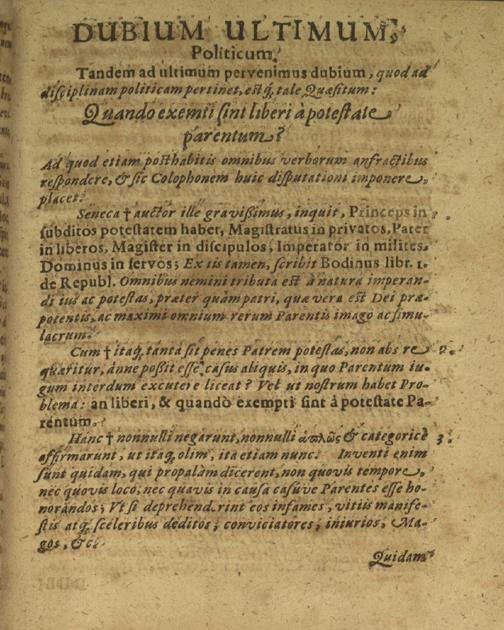 DUBIUM ULTIMUM,
Politicum.
Tandem ad ultimum pervenimus dubium, quod ad
disciplinam politicam pertinet, est q́; tale Quæsitum:
Quando exemti sint liberi à potestate
parentum?
Ad quod etiam posthabitis omnibus verborum anfractibus
respondere, & sic Colophonem huic disputationi imponere
placet.
Seneca † auctor ille gravißimus, inquit, Princeps in
subditos potestatem habet, Magistratus in privatos, Pater
in liberos, Magister in discipulos, Imperator in milites,
Dominus in servos; Ex iis tamen, scribit Bodinus libr. 1.
de Republ. Omnibus nemini tributa est à natura imperan-
di ius ac potestas, præter quàm patri, quæ vera est Dei præ-
potentis, ac maximi omnium rerum Parentis imago ac simu-
lacrum.
Cum † itaq́; tanta sit penes Patrem potestas, non abs re 2.
quæritur, anne poßit esse casus aliquis, in quo Parentum iu-
gum interdum excutere liceat? Vel ut nostrum habet Pro-
blema: an liberi, & quando exempti sint à potestate Pa-
rentum.
Hanc † nonnulli negarunt, nonnulli ἁπλῶς & categoricè 3.
affirmarunt, ut itaq́; olim, ita etiam nunc. Inventi enim
sunt quidam, qui propalàm dicerent, non quovis tempore,
nec quovis loco, nec quavis in causa casúve Parentes esse ho-
norandos; Vt si deprehenderint eos infames, vitiis manife-
stis atq́; sceleribus deditos; conviciatores, iniurios, Ma-
gos, &c.
Quidam